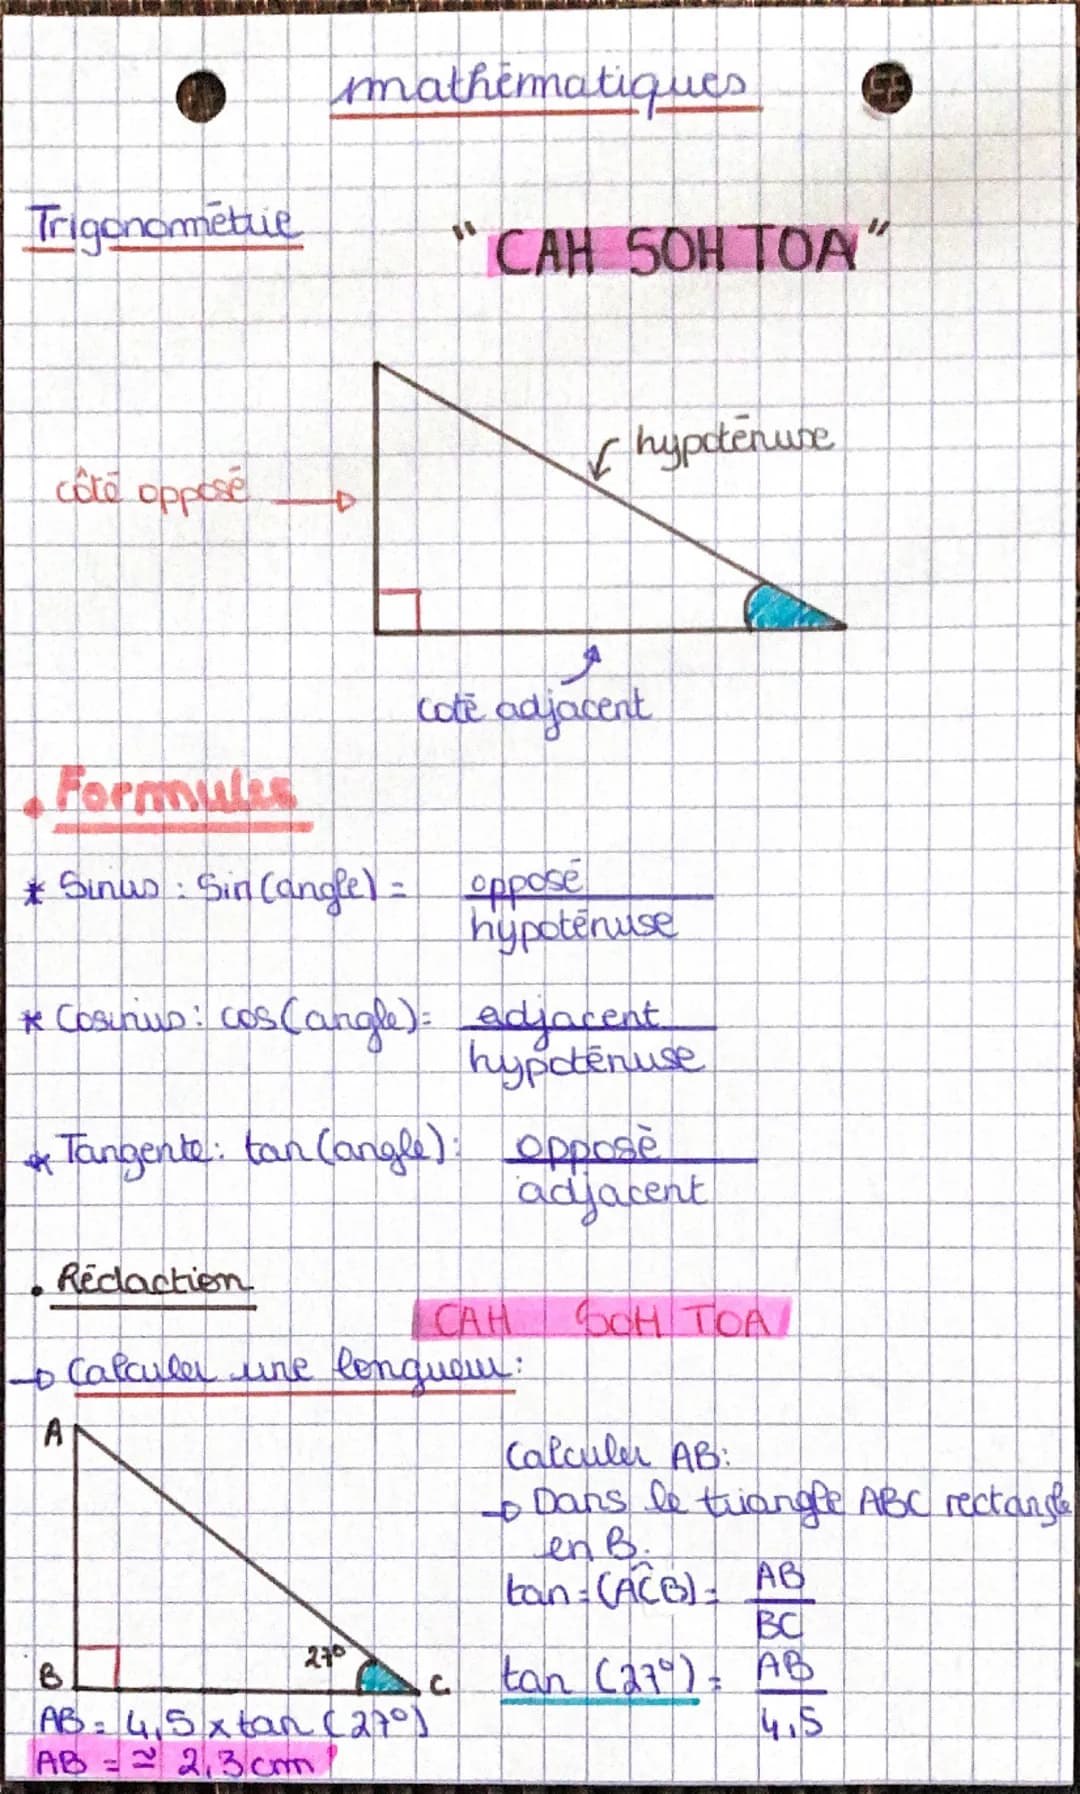 mathématiques
Trigonométrie
"CAH SOH TOA"
hypoténuse
côté opposé
coté adjacent
• Formules
* Sinus : Sin(angle) = opposé
hypoténuse
* Cosinus : cos(angle) = adjacent
hypoténuse
* Tangente : tan(angle) : opposé
adjacent
• Rédaction
CAH SOH TOA
→ Calculer une longueur :
A
Calculer AB :
→ Dans le triangle ABC rectangle
en B.
tan = (AĈB) = AB
BC
27°
B
C.
tan (27°) = AB
4,5
AB = 4,5 x tan (27°)
AB = ≃ 2,3 cm